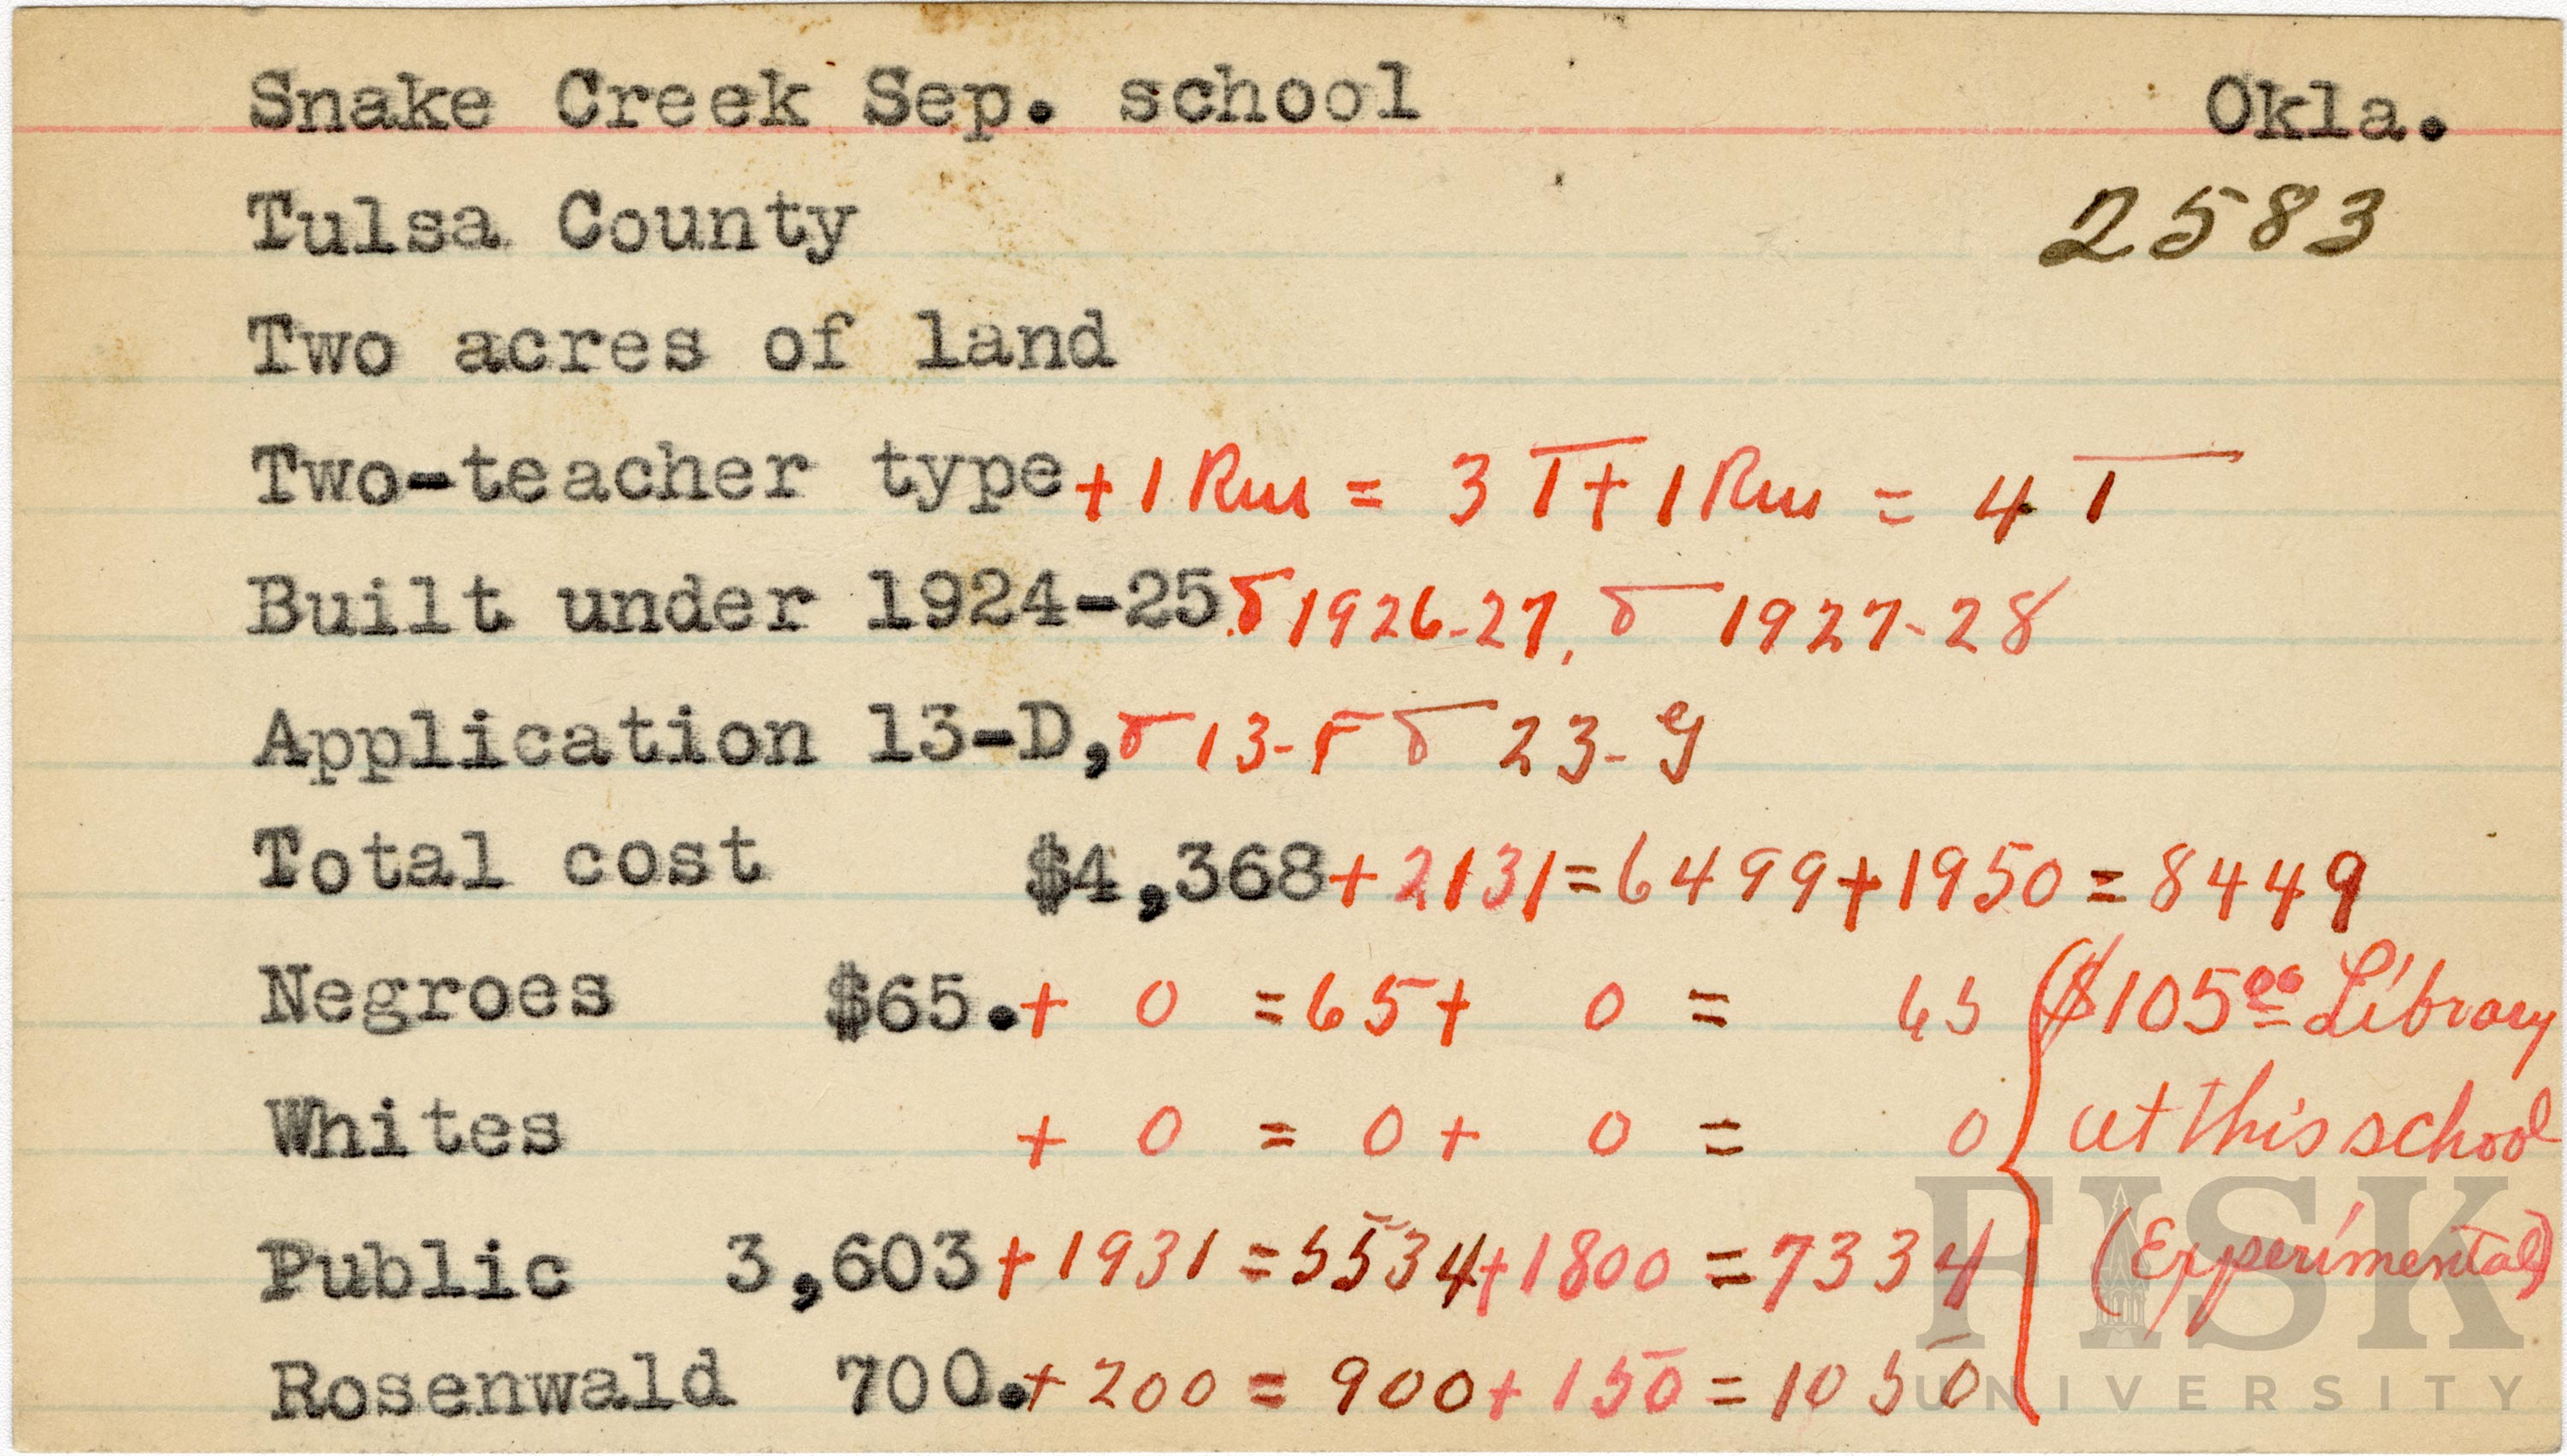 Snake Creek Sep. school Okla.
Tulsa County 2583
Two acres of land
Two-teacher type + 1 Rm = 3 T + 1 Rm = 4 T
Built under 1924-25 & 1926-27, & 1927-28
Application 13-D, & 13-F & 23-G
Total cost $4,368 + 2131 = 6499 + 1950 = 8449
Negroes $65. + 0 = 65 + 0 = 65 ($105.00 Library
Whites + 0 = 0 + 0 = 0 at this school
Public 3,603 + 1931 = 5534 + 1800 = 7334 (Experimental)
Rosenwald 700. + 200 = 900 + 150 = 1050
FISK
UNIVERSITY